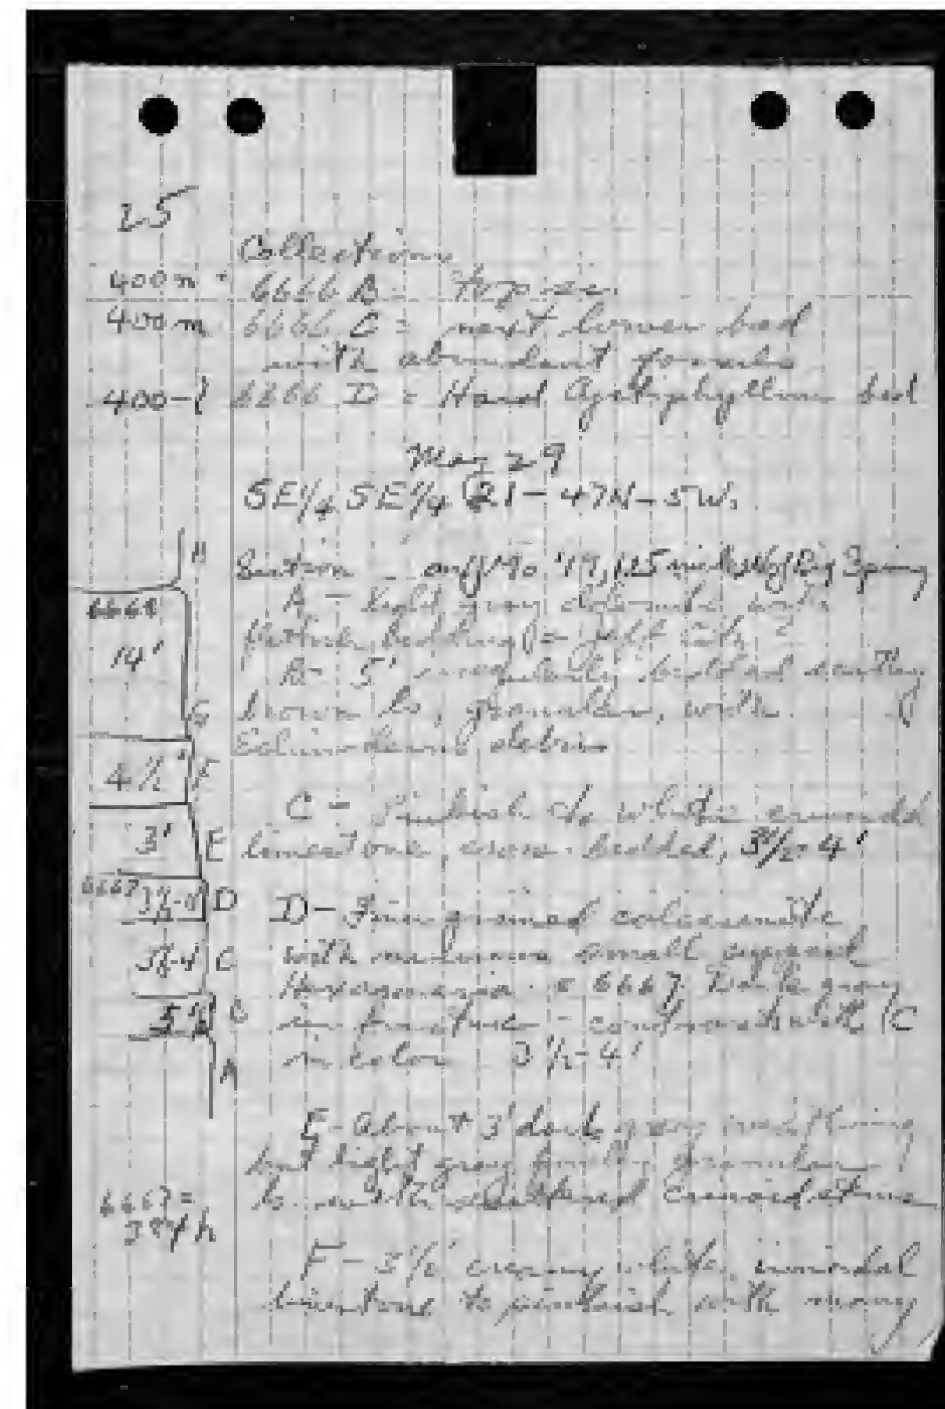 25
Collections
400 m = 6666 B = top
400 m 6666 C = next lower bed
with abundant fossils
400-l 6666 D = Hard bed
May 29
SE 1/4 SE 1/4 21-47N-5W.
Section on Mo 19, 1.25 miles of Big Spring
A - Light gray dolomite with
bedding = Jeff City ?
B - 5' irregularly bedded
brown ls, granular, with
debris
C - Pinkish to white crinoidal
limestone, cross-bedded, 3 1/2-4'
D - Fine grained calcarenite
with small
Hexagonaria = 6667. Dark gray
in fracture - contrasts with C
in color 3 1/2-4'
E - About 3' dark gray weathering
but light gray finely granular
ls with scattered crinoid stems
F - 3 1/2' creamy white crinoidal
limestone to pinkish with many
H
6668
14'
G
4 1/2' F
3' E
6667 3 1/2-4' D
3 1/2-4 C
B
A
6667 =